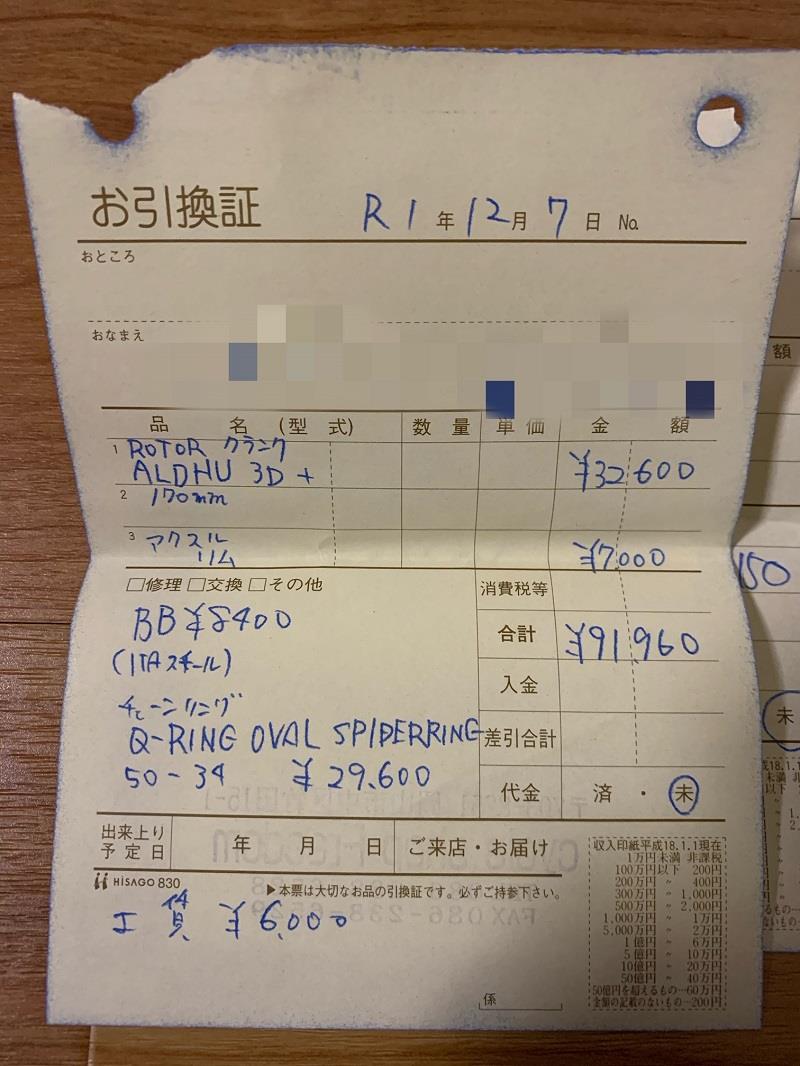 お引換証 R1年12月7日 No.
おところ
おなまえ
額
品名(型式) 数量 単価 金額
1 ROTOR クランク
ALDHU 3D+ ¥32600
2 170mm
3 アクスル
リム ¥7000
□修理 □交換 □その他 消費税等
150
BB ¥8400
合計 ¥91960
(ITAスチール)
入金
チェーンリング
Q-RING OVAL SPIDERRING
差引合計
未
50-34 ¥29.600
代金 済・未
出来上り
予定日 年 月 日 ご来店・お届け
HISAGO 830 ▶本票は大切なお品の引換証です。必ずご持参下さい。
工賃 ¥6,000
収入印紙平成18.1.1現在
1万円未満 非課税
100万円以下 200円
200万円 〃 400円
300万円 〃 1,000円
500万円 〃 2,000円
1,000万円 〃 1万円
5,000万円 〃 2万円
1億円 〃 6万円
5億円 〃 10万円
10億円 〃 20万円
50億円 〃 40万円
50億円を超えるもの…60万円
金額の記載のないもの…200円
係